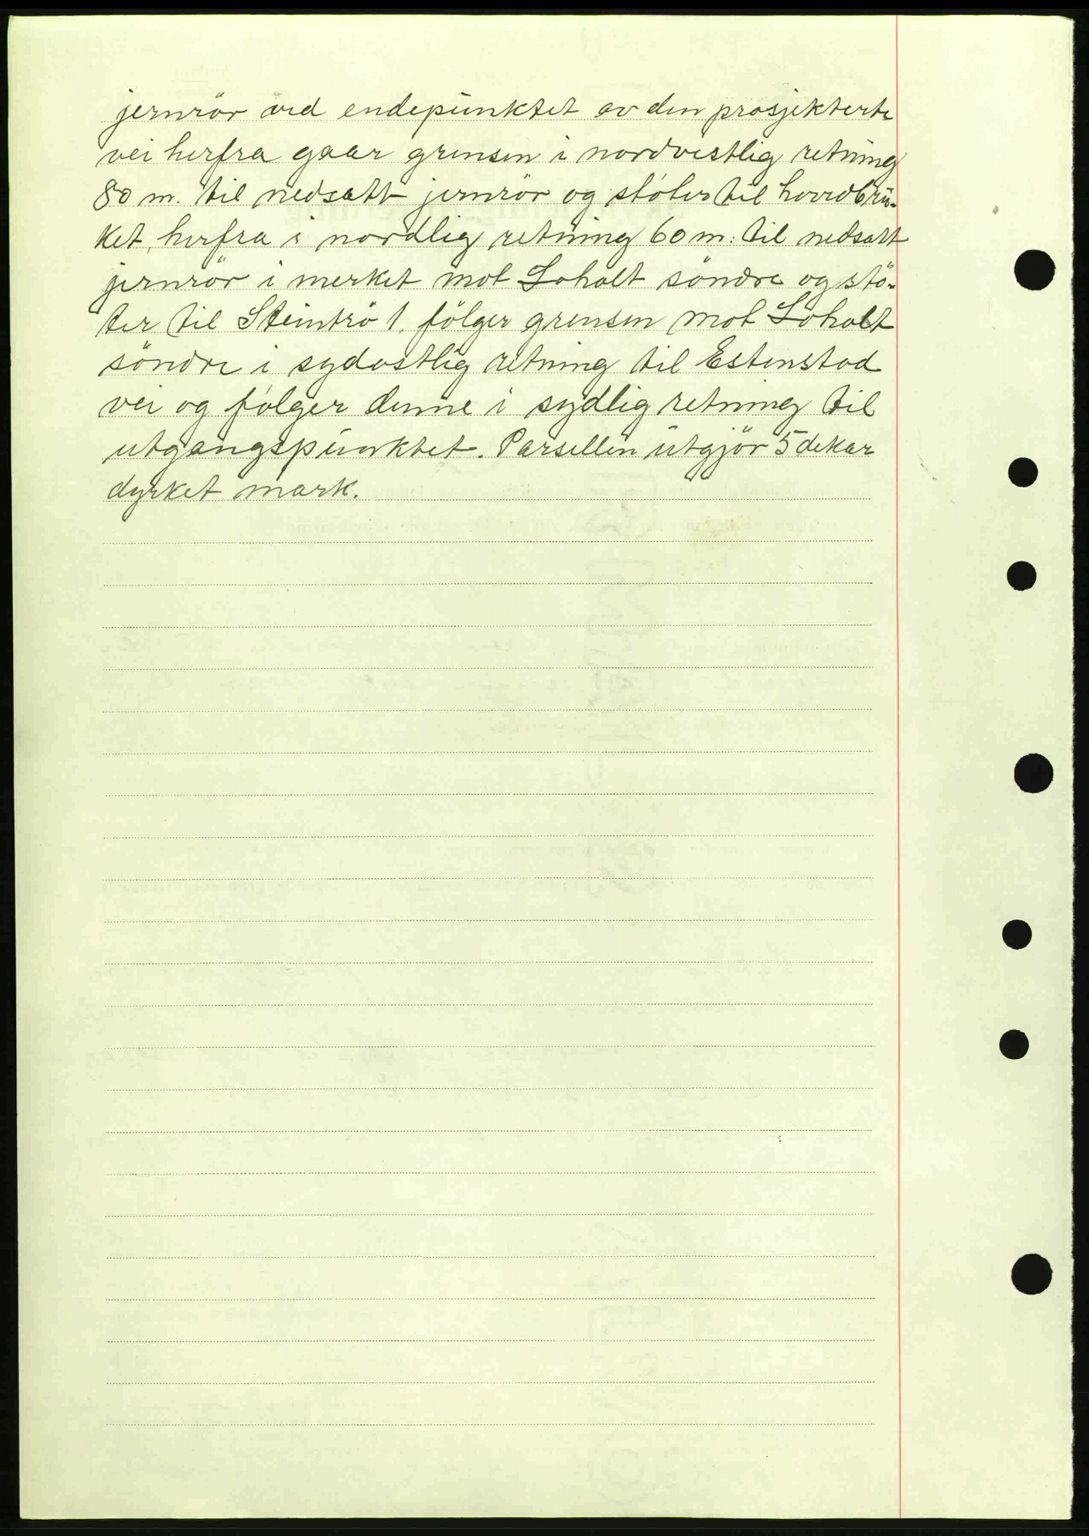 jernrör ved endepünktet av den prosjekterte
vei herfra gaar grensen i nordvestlig retning
80 m. til nedsatt jernrör og støter til hovedbrü-
ket, herfra i nordlig retning 60 m. til nedsatt
jernrör i merket mot Loholt söndre og stö-
ter til Steintrö 1. fölger grensen mot Loholt
söndre i sydostlig retning til Estenstad
vei og fölger denne i sydlig retning til
utgangspünktet. Parsellen ütgjör 5 dekar
dyrket mark.